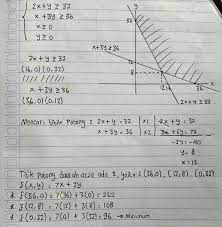 2x+y ≥ 32
x+3y ≥ 36
x ≥ 0
y ≥ 0
2x+y ≥ 32
(16,0) (0,32)
x+3y ≥ 36
(36,0) (0,12)
y
32
x+3y ≥ 36
12
8
12
36
x
2x+y ≥ 32
Mencari titik Potong : 2x+y = 32 | x1 | 2x+y = 32
x+3y = 36 | x2 | 2x+6y = 72
-5y = -40
y = 8
x = 12
Titik Potong daerah arsir ada 3, yaitu (36,0), (12,8), (0,32)
f(x,y) = 7x + 3y
f(36,0) = 7(36) + 3(0) = 252
f(12,8) = 7(12) + 3(8) = 108
f(0,32) = 7(0) + 3(32) = 96 → Minimum